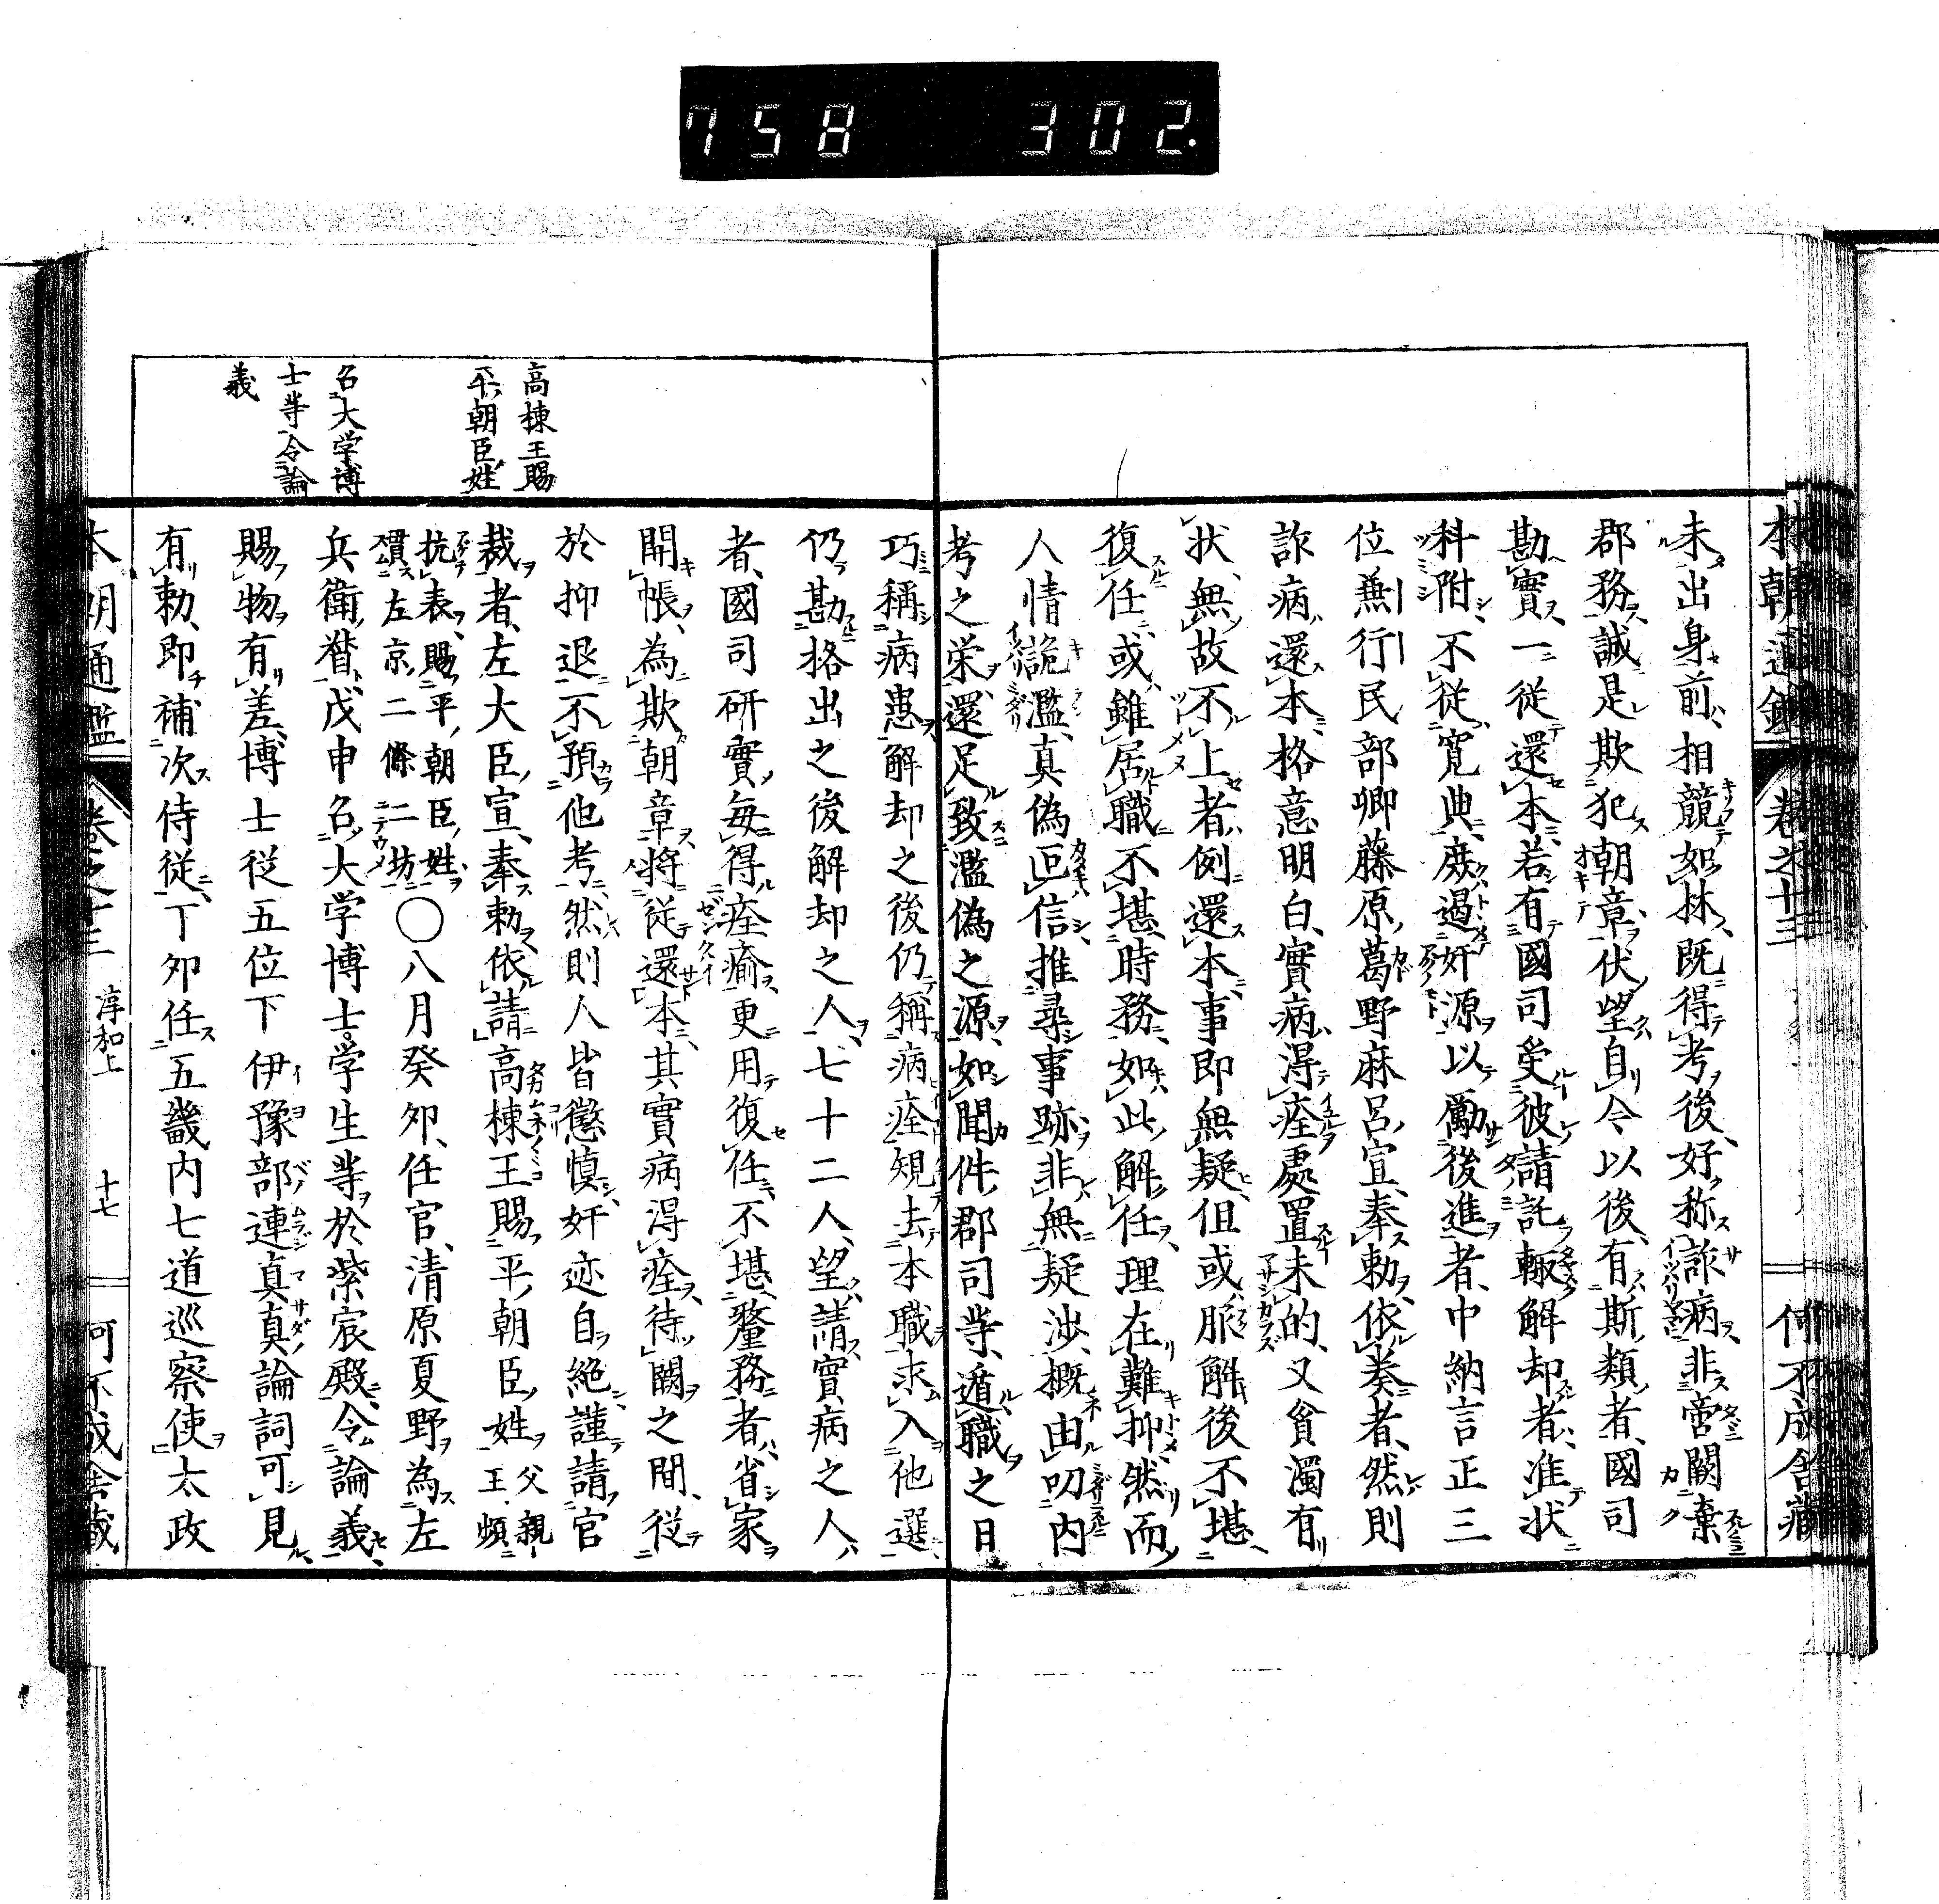 758 302.
本朝通鑑 卷之十三 何不成舎蔵
未出身前相競如林既得考後好称詐病非啻闕棄
郡務誠是欺犯朝章伏望自今以後有斯類者國司
勘實一従還本若有國司受彼請託輙解却者准状
科附不従寛典庶遏奸源以勵後進者中納言正三
位兼行民部卿藤原葛野麻呂宣奉勅依奏者然則
詐病還本格意明白實病得痊處置未的又貪濁有
状無故不上者例還本事即無疑但或脈解後不堪
復任或雖居職不堪時務如此解任理在難抑然而
人情詭濫真偽叵信推尋事跡非無疑渉概由叨内
考之栄還足致濫偽之源如聞件郡司等遁職之日
巧稱病患解却之後仍稱病痊規去本職求入他選
仍勘格出之後解却之人七十二人望請實病之人
者國司研實毎得痊瘉更用復任不堪釐務者省家
開帳為欺朝章將従還本其實病得痊待闕之間従
於抑退不預他考然則人皆懲慎奸迹自絶謹請官
裁者左大臣宣奉勅依請高棟王賜平朝臣姓父親王頻
抗表賜平朝臣姓貫左京二條二坊〇八月癸夘任官清原夏野為左
兵衛督戊申名大学博士学生等於紫宸殿令論義
賜物有差博士従五位下伊豫部連真真論詞可見
有勅即補次侍従丁夘任五畿内七道巡察使太政
高棟王賜
平朝臣姓
名大学博
士等令論
義
本朝通鑑 卷之十三 淳和上 十七 何不成舎蔵